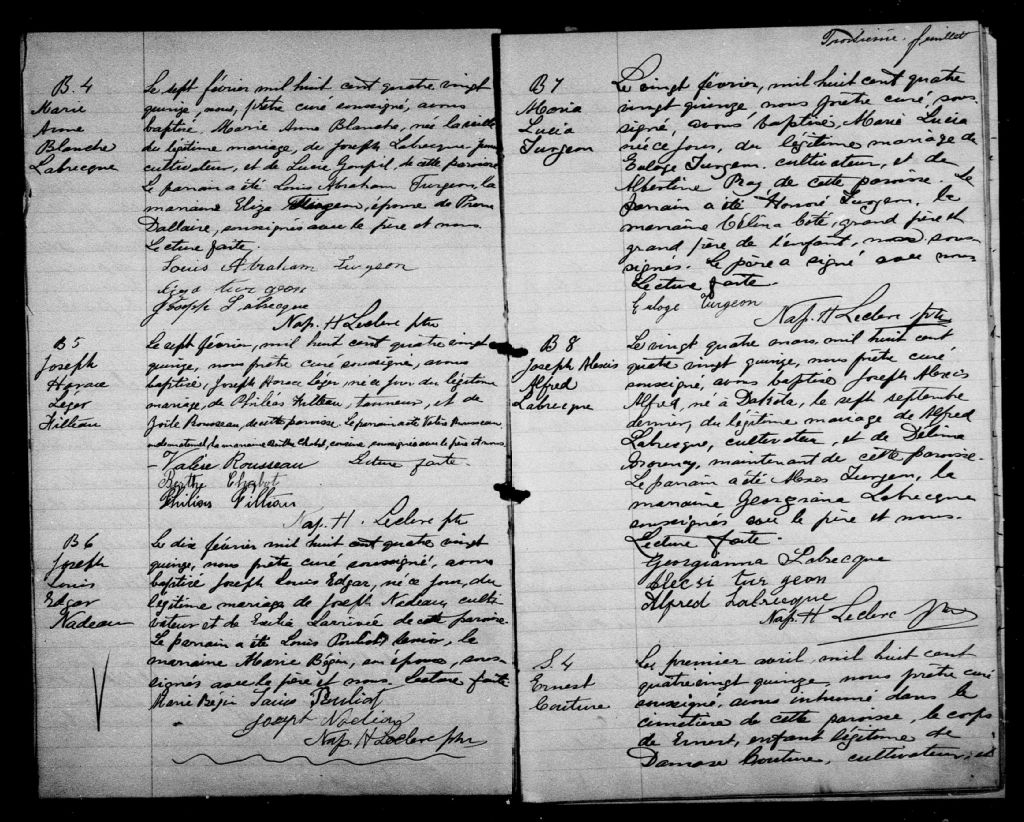 B. 4
Marie
Anne
Blanche
Labrecque
Le sept février mil huit cent quatre vingt
quinze, nous, prêtre curé soussigné, avons
baptisé Marie Anne Blanche, née la veille
du légitime mariage, de Joseph Labrecque
cultivateur, et de Lucie Goupil, de cette paroisse
Le parrain a été Louis Abraham Turgeon, la
marraine Eliza Turgeon, épouse de
Dallaire, soussignés avec le père et nous.
Lecture faite.
Louis Abraham Turgeon
turgeon
Joseph Labrecque
Nap. H Leclerc ptre
B 5
Joseph
Horace
Léger
Filteau
Le sept février, mil huit cent quatre vingt
quinze, nous prêtre curé soussigné, avons
baptisé, Joseph Horace Léger, né ce jour du légitime
mariage, de Philéas Filteau, tanneur, et de
Rousseau, de cette paroisse. Le parrain a été Valère Rousseau,
la marraine Berthe Chabot, cousine, soussignés avec le père et nous
— Valère Rousseau Lecture faite.
Berthe Chabot
Philéas Filteau
Nap. H. Leclerc ptr
B 6
Joseph
Louis
Edgar
Nadeau
Le dix février mil huit cent quatre vingt
quinze, nous prêtre curé soussigné, avons
baptisé Joseph Louis Edgar, né ce jour, du
légitime mariage de Joseph Nadeau, culti-
vateur et de Larrivée de cette paroisse
Le parrain a été Louis Pouliot, la
marraine Marie Bégin, son épouse, sous-
signés avec le père et nous. Lecture faite
Marie Bégin Louis Pouliot
Joseph Nadeau
Nap. H Leclerc ptr
Troisième feuillet
B 7
Maria
Lucia
Turgeon
Le vingt février, mil huit cent quatre
vingt quinze, nous prêtre curé, sous-
signé, avons baptisé, Marie Lucia
née ce jour, du légitime mariage de
Euloge Turgeon, cultivateur, et de
Albertine Roy, de cette paroisse. Le
parrain a été Honoré Turgeon, la
marraine Célina Coté, grand père et
grand mère de l'enfant, sous-
signés. Le père a signé avec nous
Lecture faite.
Euloge Turgeon
Nap. H Leclerc ptr
B 8
Joseph Alexis
Alfred
Labrecque
Le vingt quatre mars mil huit cent
quatre vingt quinze, nous prêtre curé
soussigné, avons baptisé Joseph Alexis
Alfred, né à Dakota, le sept septembre
dernier, du légitime mariage de Alfred
Labrecque, cultivateur, et de Délima
maintenant de cette paroisse.
Le parrain a été Turgeon, la
marraine Georgiana Labrecque
soussignés avec le père et nous.
Lecture faite.
Georgianna Labrecque
turgeon
Alfred Labrecque
Nap. H Leclerc ptr
S. 4
Ernest
Couture
Le premier avril, mil huit cent
quatre vingt quinze, nous prêtre curé
soussigné, avons inhumé dans le
cimetière de cette paroisse, le corps
de Ernest, enfant légitime de
Damase Couture, cultivateur, et